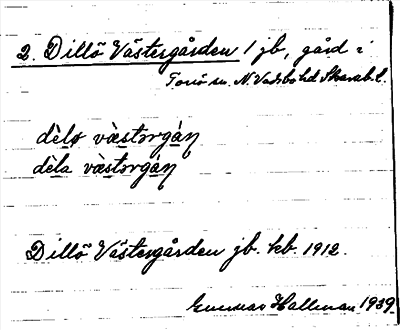 2. Dillö Västergården 1 jb, gård i
Torsö sn. N. Vadsbo hd Skarab. l.
dèlø væ̀stərgàn̥
dèla væ̀stərgàn̥
Dillö Västergården jb. kb. 1912.
Gunnar Hallman 1939.